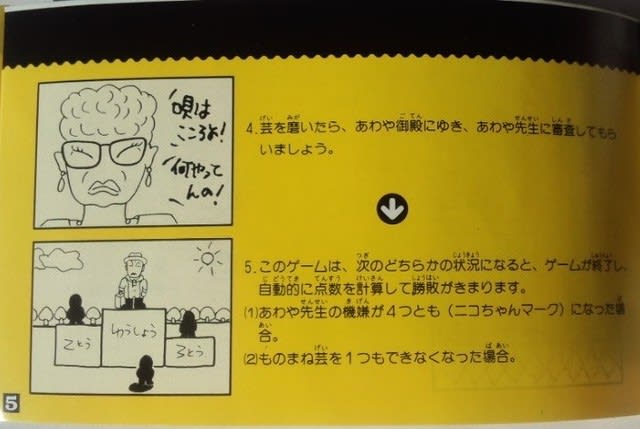 唄は
こころよ!
何やって
んの!
4.芸を磨いたら、あわや御殿にゆき、あわや先生に審査してもら
いましょう。
5.このゲームは、次のどちらかの状況になると、ゲームが終了し、
自動的に点数を計算して勝敗がきまります。
(1)あわや先生の機嫌が4つとも(ニコちゃんマーク)になった場
合。
(2)ものまね芸を1つもできなくなった場合。
2とう
ゆうしょう
3とう
5